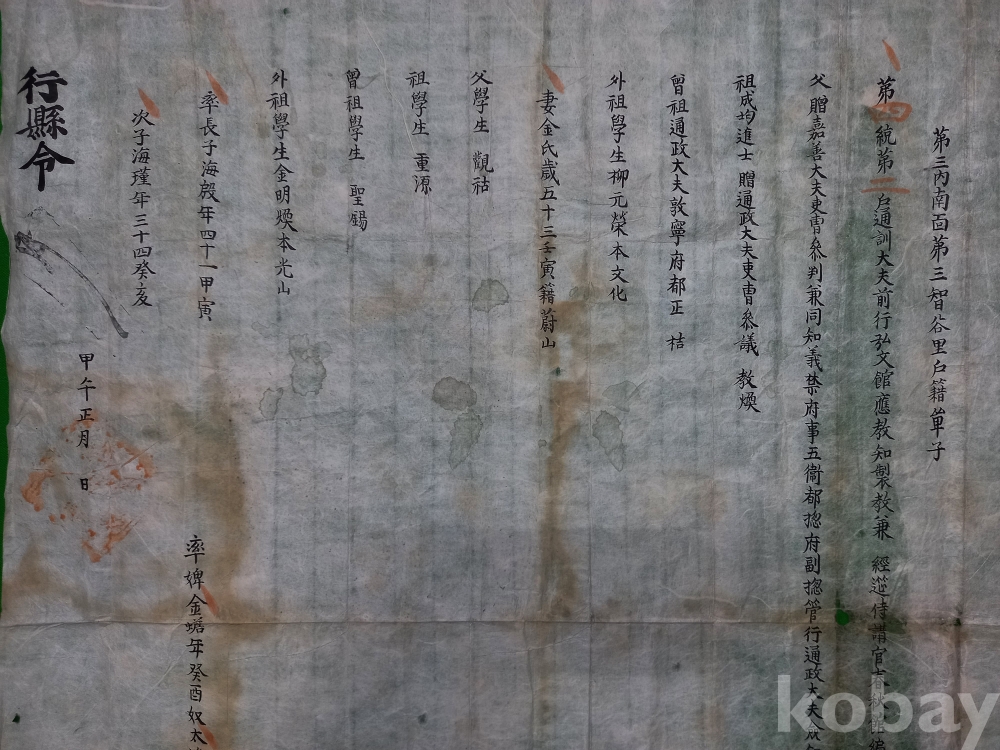 第三內南面第三智谷里戶籍單子
第四統第二戶通訓大夫前行弘文館應教知製教兼 經筵侍讀官春秋館編
父贈嘉善大夫吏曹參判兼同知義禁府事五衛都摠府副摠管行通政大夫僉知
祖成均進士 贈通政大夫吏曹參議 教煥
曾祖通政大夫敦寧府都正 桔
外祖學生柳元榮本文化
妻金氏歲五十三壬寅籍蔚山
父學生 觀祜
祖學生 重源
曾祖學生 聖錫
外祖學生金明煥本光山
率長子海殷年四十一甲寅
次子海瑾年三十四癸亥
率婢金蟾年癸酉奴太
甲午正月 日
行縣令
kobay